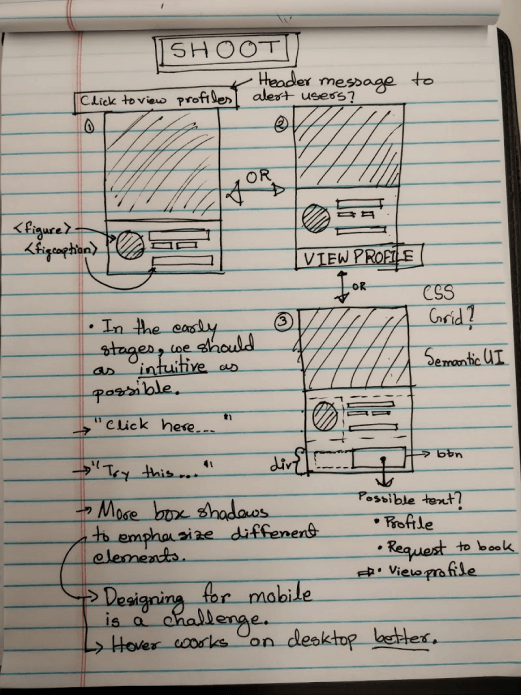 SHOOT
Header message to
alert users?
Click to view profiles
①
②
OR
<figure>
<figcaption>
VIEW PROFILE
OR
CSS
Grid?
③
Semantic UI
• In the early
stages, we should
as intuitive as
possible.
→ "Click here..."
→ "Try this..."
div
btn
Possible text?
• Profile
• Request to book
⇒• View profile
→ More box shadows
to emphasize different
elements.
→ Designing for mobile
is a challenge.
→ Hover works on desktop better.